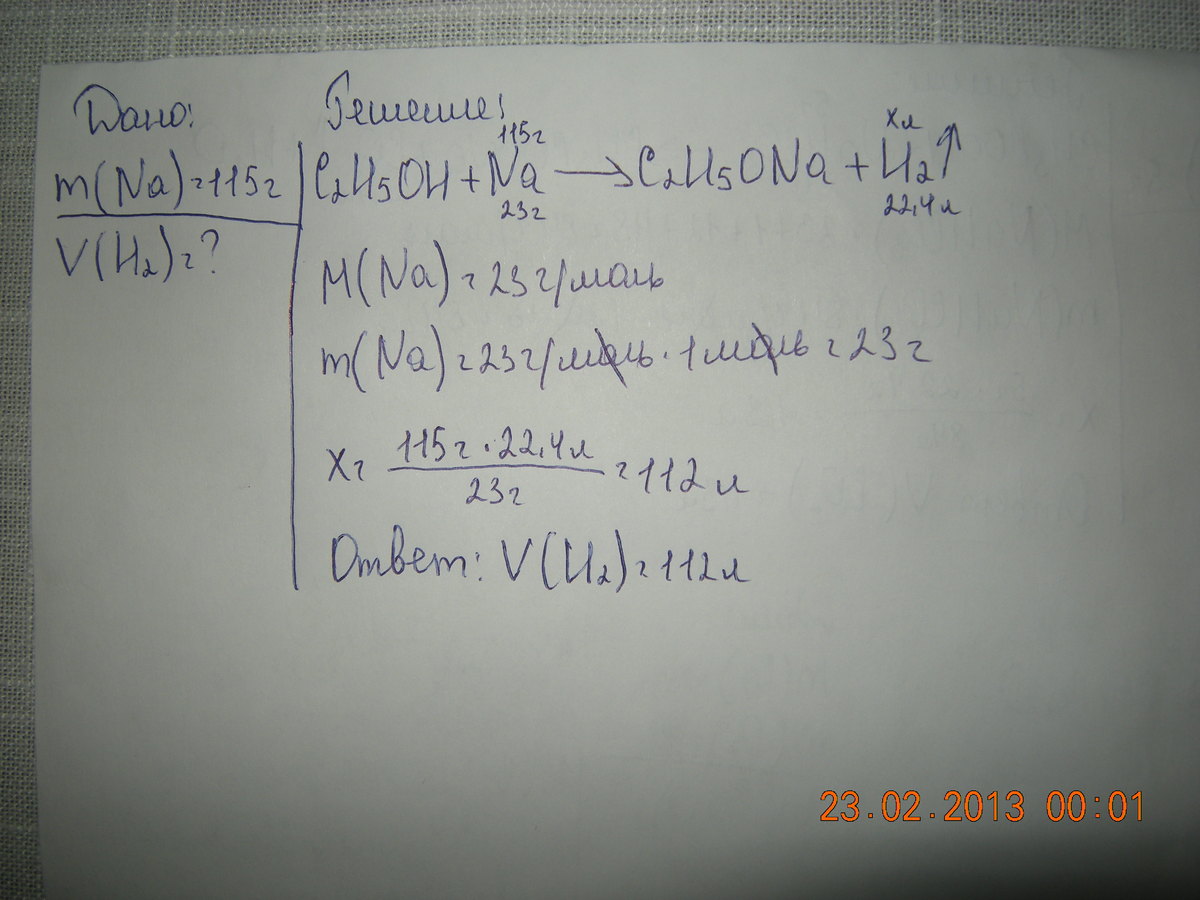 Дано:
m(Na)=115г
V(H₂)=?
Решение:
115г хл
C₂H₅OH + Na → C₂H₅ONa + H₂↑
23г 22,4л
M(Na)=23г/моль
m(Na)=23г/моль·1моль=23г
x= 115г·22,4л
23г
=112л
Ответ: V(H₂)=112л
23.02.2013 00:01